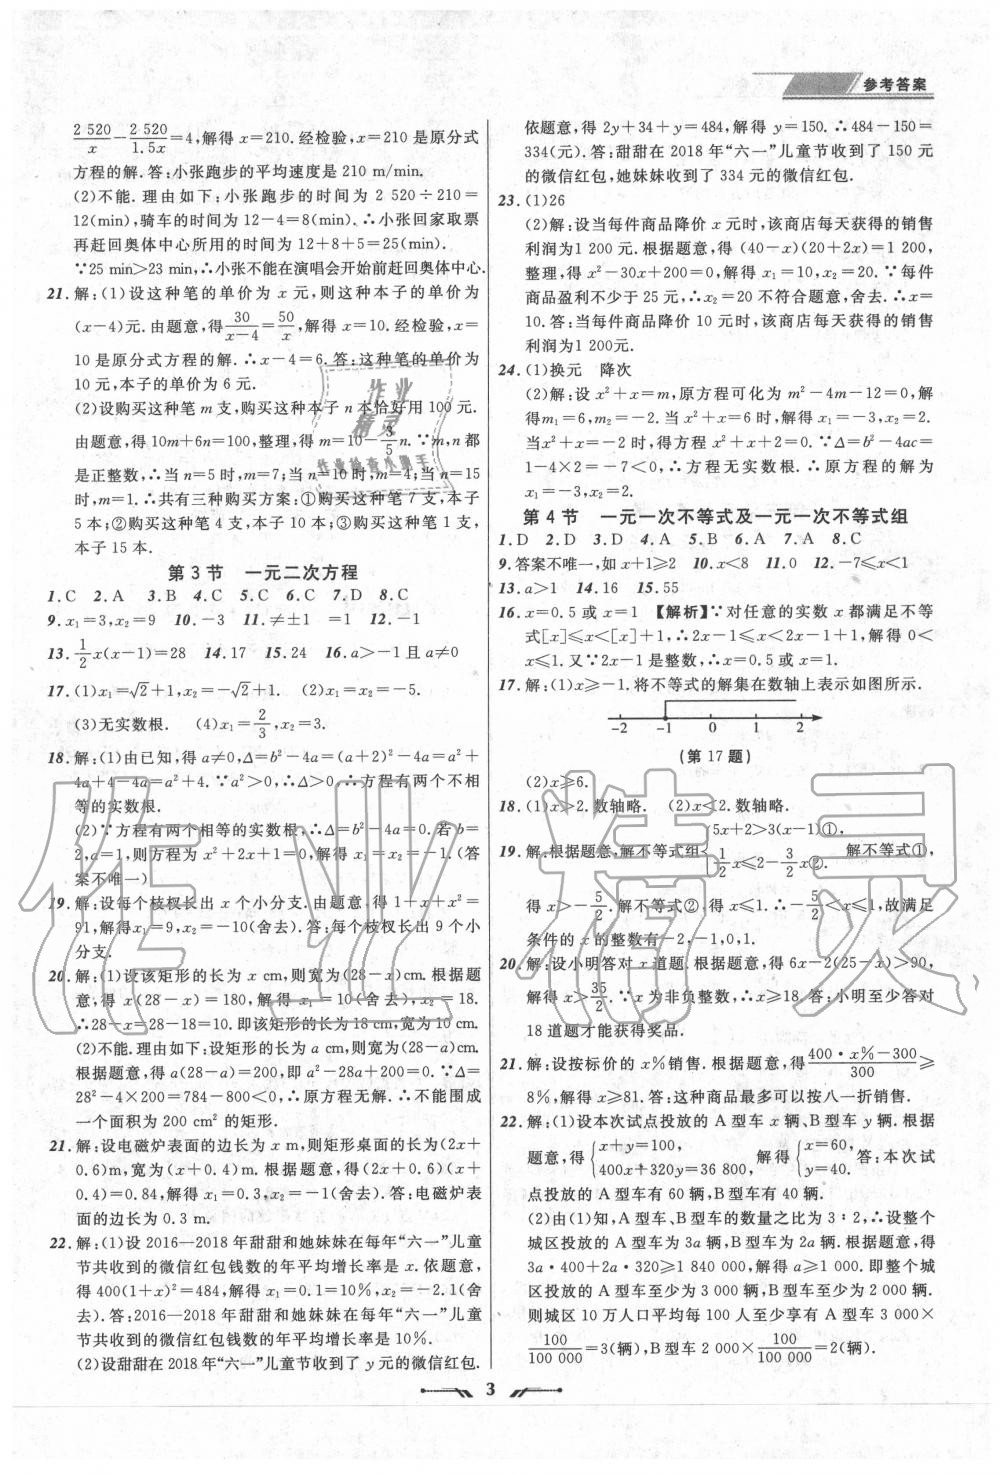 参考答案
2 520/x－2 520/1.5x＝4,解得 x＝210. 经检验,x＝210 是原分式
方程的解. 答:小张跑步的平均速度是 210 m/min.
(2)不能. 理由如下:小张跑步的时间为 2 520÷210＝
12(min),骑车的时间为 12－4＝8(min).∴小张回家取票
再赶回奥体中心所用的时间为 12＋8＋5＝25(min).
∵25 min＞23 min,∴小张不能在演唱会开始前赶回奥体中心.
21. 解:(1)设这种笔的单价为 x 元,则这种本子的单价为
(x－4)元. 由题意,得30/(x－4)＝50/x,解得 x＝10. 经检验,x＝
10 是原分式方程的解.∴x－4＝6. 答:这种笔的单价为
10 元,本子的单价为 6 元.
(2)设购买这种笔 m 支,购买这种本子 n 本恰好用 100 元.
由题意,得 10m＋6n＝100,整理,得 m＝10－3/5n.∵m,n 都
是正整数,∴当 n＝5 时,m＝7;当 n＝10 时,m＝4;当 n＝15
时,m＝1.∴共有三种购买方案:①购买这种笔 7 支,本子
5 本;②购买这种笔 4 支,本子 10 本;③购买这种笔 1 支,
本子 15 本.
第 3 节 一元二次方程
1. C 2. A 3. B 4. C 5. C 6. C 7. D 8. C
9. x₁＝3,x₂＝9 10. －3 11. ≠±1 ＝1 12. －1
13. 1/2x(x－1)＝28 14. 17 15. 24 16. a＞－1 且 a≠0
17. (1)x₁＝√2＋1,x₂＝－√2＋1. (2)x₁＝x₂＝－5.
(3)无实数根. (4)x₁＝2/3,x₂＝3.
18. 解:(1)由已知,得 a≠0,Δ＝b²－4a＝(a＋2)²－4a＝a²＋
4a＋4－4a＝a²＋4.∵a²＞0,∴Δ＞0.∴方程有两个不相
等的实数根.
(2)∵方程有两个相等的实数根,∴Δ＝b²－4a＝0. 若 b＝
2,a＝1,则方程为 x²＋2x＋1＝0,解得 x₁＝x₂＝－1.(答
案不唯一)
19. 解:设每个枝杈长出 x 个小分支. 由题意,得 1＋x＋x²＝
91,解得x₁＝9,x₂＝－10(舍去). 答:每个枝杈长出 9 个小
分支.
20. 解:(1)设该矩形的长为 x cm,则宽为(28－x)cm. 根据题
意,得 x(28－x)＝180,解得 x₁＝10(舍去),x₂＝18.
∴28－x＝28－18＝10. 即该矩形的长为 18 cm,宽为 10 cm.
(2)不能. 理由如下:设矩形的长为 a cm,则宽为(28－a)cm.
根据题意,得 a(28－a)＝200,即 a²－28a＋200＝0.∵Δ＝
28²－4×200＝784－800＜0,∴原方程无解.∴不能围成
一个面积为 200 cm² 的矩形.
21. 解:设电磁炉表面的边长为 x m,则矩形桌面的长为(2x＋
0.6)m,宽为(x＋0.4)m. 根据题意,得(2x＋0.6)(x＋
0.4)＝0.84,解得 x₁＝0.3,x₂＝－1(舍去). 答:电磁炉表
面的边长为 0.3 m.
22. 解:(1)设 2016—2018 年甜甜和她妹妹在每年“六一”儿童
节共收到的微信红包钱数的年平均增长率是 x. 依题意,
得 400(1＋x)²＝484,解得 x₁＝0.1＝10%,x₂＝－2.1(舍
去). 答:2016—2018 年甜甜和她妹妹在每年“六一”儿童
节共收到的微信红包钱数的年平均增长率是 10%.
(2)设甜甜在 2018 年“六一”儿童节收到了 y 元的微信红包.
依题意,得 2y＋34＋y＝484,解得 y＝150.∴484－150＝
334(元). 答:甜甜在 2018 年“六一”儿童节收到了 150 元
的微信红包,她妹妹收到了 334 元的微信红包.
23. (1)26
(2)解:设当每件商品降价 x 元时,该商店每天获得的销售
利润为1 200 元. 根据题意,得 (40－x)(20＋2x)＝1 200,
整理,得 x²－30x＋200＝0,解得 x₁＝10,x₂＝20.∵每件
商品盈利不少于 25 元,∴x₂＝20 不符合题意,舍去.∴x＝
10. 答:当每件商品降价 10 元时,该商店每天获得的销售
利润为1 200元.
24. (1)换元 降次
(2)解:设 x²＋x＝m,原方程可化为 m²－4m－12＝0,解
得m₁＝6,m₂＝－2. 当 x²＋x＝6 时,解得 x₁＝－3,x₂＝2.
当x²＋x＝－2 时,得方程 x²＋x＋2＝0.∵Δ＝b²－4ac＝
1－4×2＝－7＜0,∴方程无实数根.∴原方程的解为
x₁＝－3,x₂＝2.
第 4 节 一元一次不等式及一元一次不等式组
1. D 2. D 3. D 4. A 5. B 6. A 7. A 8. C
9. 答案不唯一,如 x＋1≥2 10. x＜8 11. 0 12. －7≤x＜1
13. a＞1 14. 16 15. 55
16. x＝0.5 或 x＝1 【解析】∵对任意的实数 x 都满足不等
式[x]≤x＜[x]＋1,∴2x－1≤x＜2x－1＋1,解得 0＜
x≤1. 又∵2x－1 是整数,∴x＝0.5 或 x＝1.
17. 解:(1)x≥－1. 将不等式的解集在数轴上表示如图所示.
－2 －1 0 1 2
(第 17 题)
(2)x≥6.
18. (1)x＞2. 数轴略. (2)x＜2. 数轴略.
19. 解:根据题意,解不等式组{5x＋2＞3(x－1)①, 1/2x≤2－3/2x②. 解不等式①,
得 x＞－5/2. 解不等式②,得 x≤1.∴－5/2＜x≤1,故满足
条件的 x 的整数有－2,－1,0,1.
20. 解:设小明答对 x 道题. 根据题意,得 6x－2(25－x)＞90,
解得 x＞35/2.∵x 为非负整数,∴x≥18. 答:小明至少答对
18 道题才能获得奖品.
21. 解:设按标价的 x%销售. 根据题意,得(400·x%－300)/300≥
8%,解得 x≥81. 答:这种商品最多可以按八一折销售.
22. 解:(1)设本次试点投放的 A 型车 x 辆、B 型车 y 辆. 根据
题意,得{x＋y＝100, 400x＋320y＝36 800, 解得{x＝60, y＝40. 答:本次试
点投放的 A 型车有 60 辆,B 型车有 40 辆.
(2)由(1)知,A 型车、B 型车的数量之比为 3∶2,∴设整个
城区投放的 A 型车为 3a 辆,B 型车为 2a 辆. 根据题意,得
3a·400＋2a·320≥1 840 000,解得 a≥1 000. 即整个城
区投放的 A 型车至少为 3 000 辆,B 型车至少为 2 000 辆.
则城区 10 万人口平均每 100 人至少享有 A 型车 3 000×
100/100 000＝3(辆),B 型车 2 000×100/100 000＝2(辆).
3
作业精灵
作业
精灵
作业检查小助手